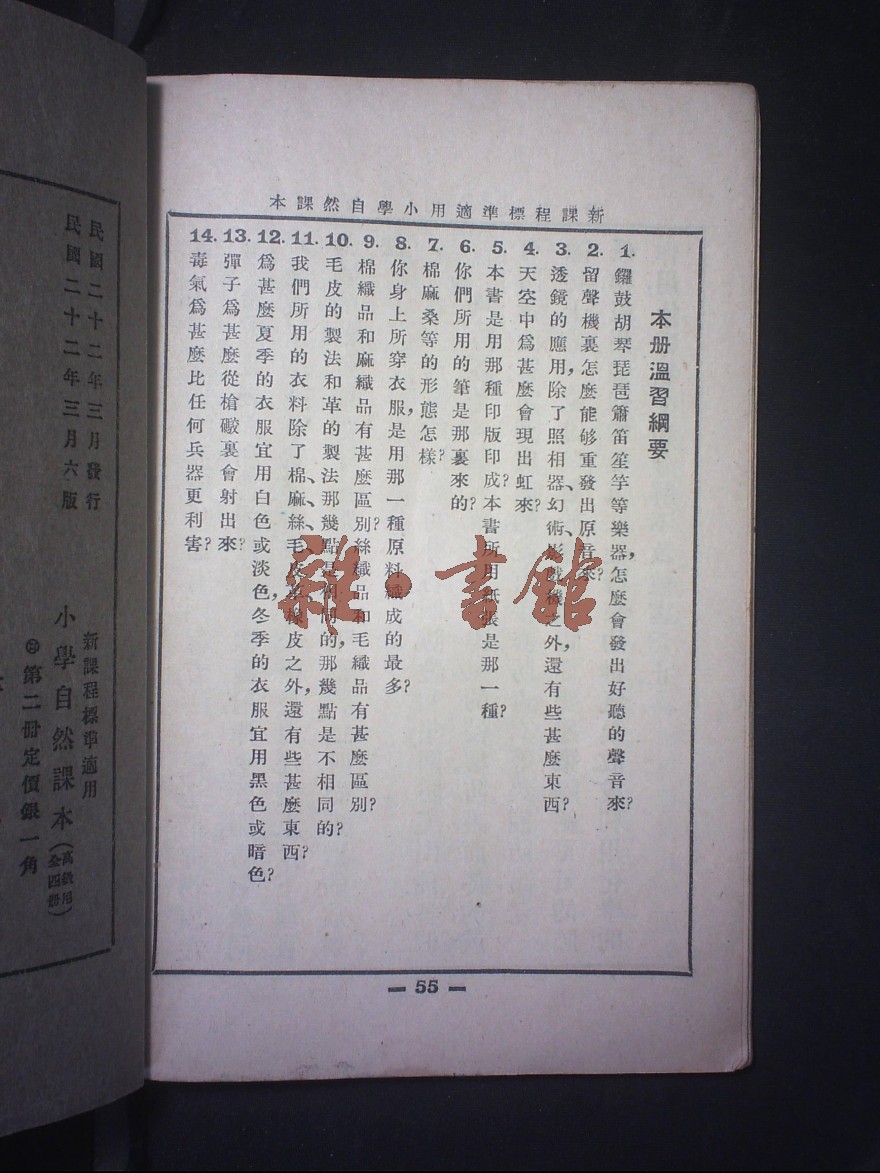 新課程標準適用小學自然課本
本册溫習綱要
1. 鑼鼓胡琴琵琶簫笛笙竽等樂器,怎麼會發出好聽的聲音來?
2. 留聲機裏怎麼能够重發出原音來?
3. 透鏡的應用,除了照相器、幻術、影戲機之外,還有些甚麼東西?
4. 天空中爲甚麼會現出虹來?
5. 本書是用那種印版印成?本書所用紙張是那一種?
6. 你們所用的筆是那裏來的?
7. 棉麻桑等的形態怎樣?
8. 你身上所穿衣服,是用那一種原料織成的最多?
9. 棉織品和麻織品有甚麼區別?絲織品和毛織品有甚麼區別?
10. 毛皮的製法和革的製法那幾點是相同的,那幾點是不相同的?
11. 我們所用的衣料除了棉、麻、絲、毛皮、革、皮之外,還有些甚麼東西?
12. 爲甚麼夏季的衣服宜用白色或淡色,冬季的衣服宜用黑色或暗色?
13. 彈子爲甚麼從槍礮裏會射出來?
14. 毒氣爲甚麼比任何兵器更利害?
— 55 —
雜·書館
民國二十二年三月發行
民國二十二年三月六版
新課程標準適用
小學自然課本(高級用全四册)
第二册定價銀一角